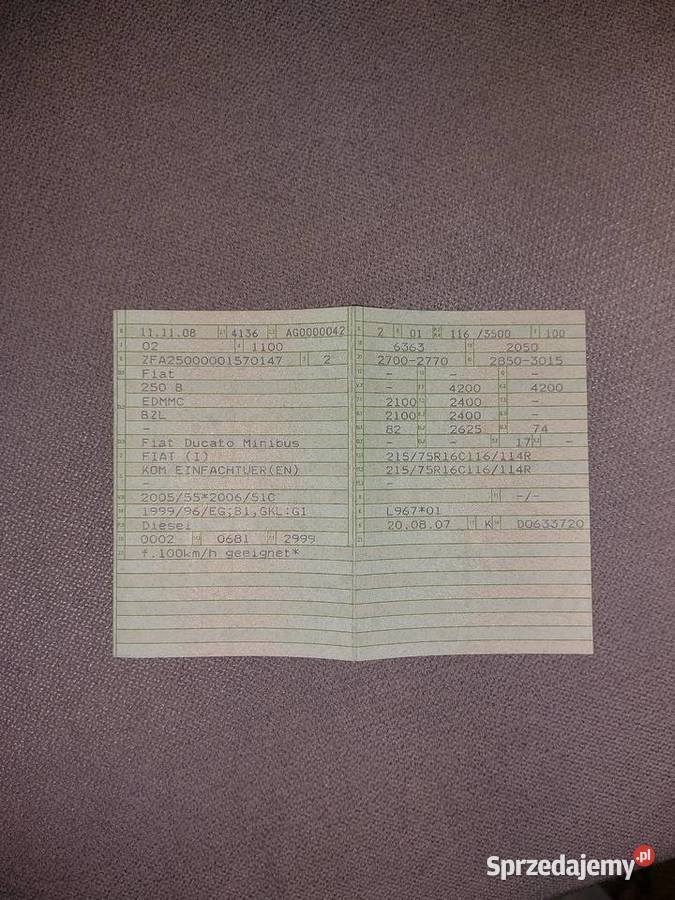 11.11.08 4136 AG0000042
02 1100
ZFA25000001570147 2
Fiat
250 B
EDMMC
BZL
-
Fiat Ducato Minibus
FIAT (I)
KOM EINFACHTUER(EN)
-
2005/55*2006/51C
1999/96/EG;B1,GKL:G1
Diesel
0002 0681 2999
f.100km/h geeignet*
2 01 116 /3500 100
6363 2050
2700-2770 2850-3015
- - -
- 4200 4200
2100 2400 -
2100 2400 -
82 2625 74
- - 17 -
215/75R16C116/114R
215/75R16C116/114R
-
-/-
L967*01
20.08.07 K D0633720
Sprzedajemy.pl